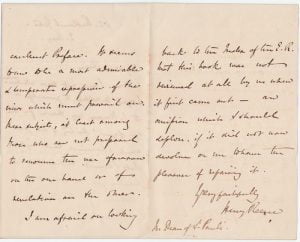 excellent Preface. It seems
to me to be a most admirable
& temperate expression of the
view which must prevail on
these subjects, at least among
those who are not prepared
to renounce the use of reason
on the one hand or of
revelation on the other.
I am afraid on looking
back to the Index of the E.R.
that this book was not
reviewed at all by us when
it first came out — an
omission which I should
deplore, if it did not now
devolve on me to have the
pleasure of repairing it.
Yours faithfully
Henry Reeve
The Dean of St Paul's